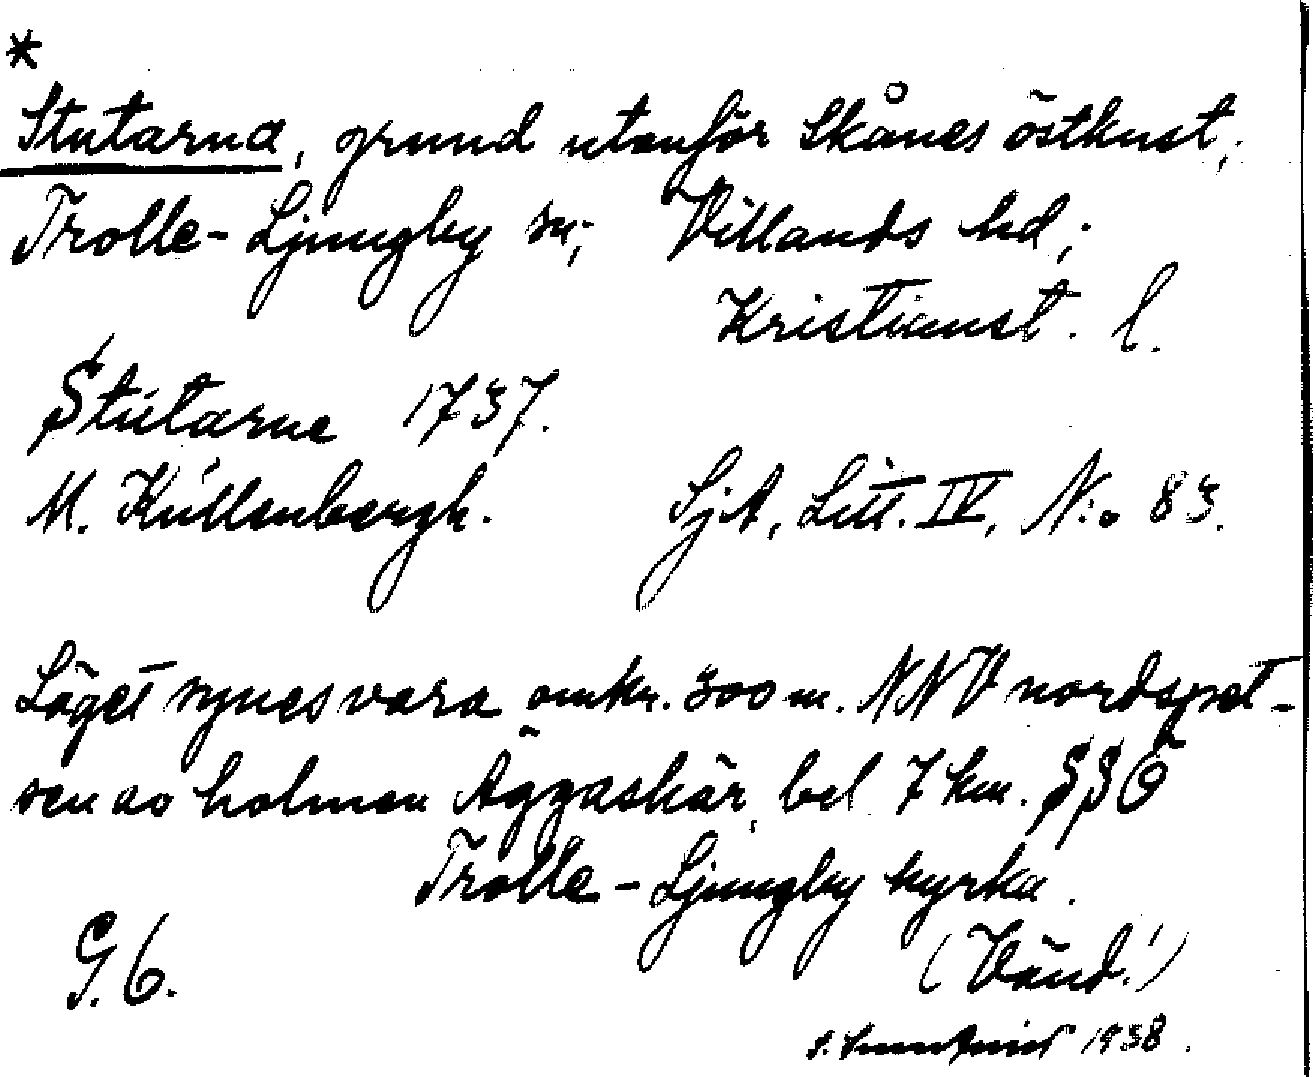 *
Stutarna, grund utanför Skånes östkust,
Trolle-Ljungby sn; Villands hd;
Kristianst. l.
Stutarne 1737.
M. Kúllenbergh. SjA, Litt. IV, N:o 83.
Läget synes vara omkr. 300 m. NNV nordspet-
sen av holmen Äggaskär, bel 7 km. SSÖ
Trolle-Ljungby kyrka.
(Vänd!)
G.6.
1938.